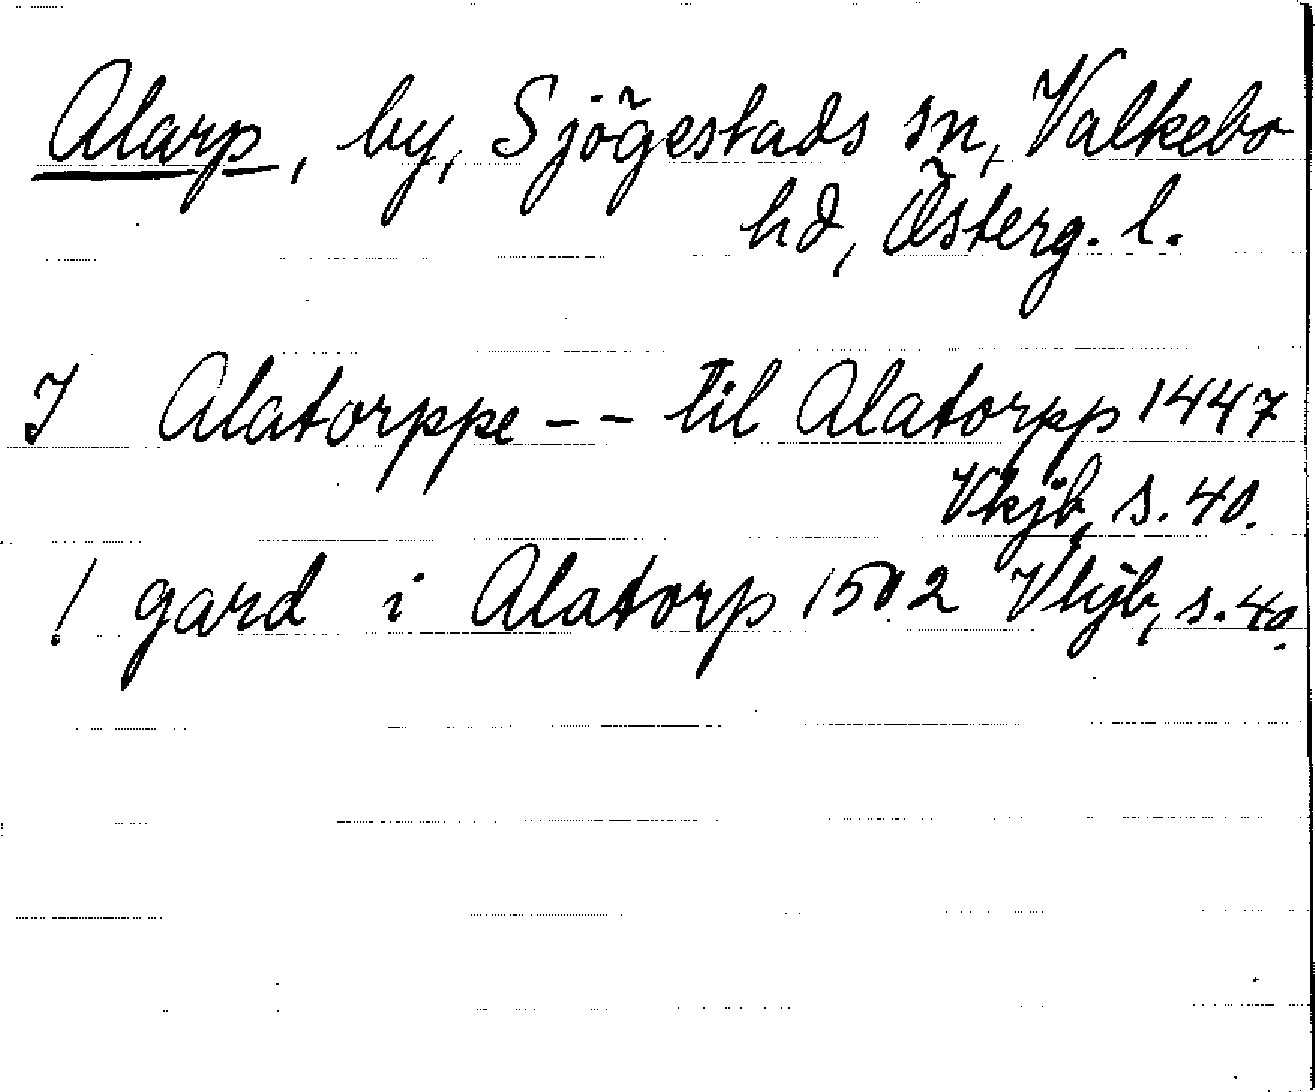 Alarp, by, Sjögestads sn, Valkebo
hd, Österg. l.
I Alatorppe -- til Alatorpp 1447
Vkjb, s. 40.
1 gard i Alatorp 1502 Vkjb, s. 40.